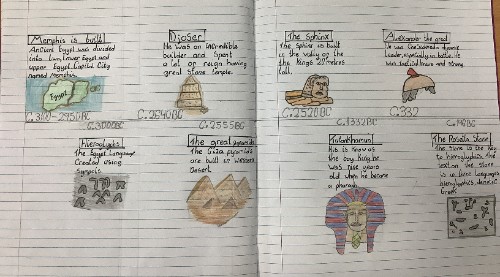 Memphis is built
Ancient Egypt was divided
into two, Lower Egypt and
upper Egypt. Capital City
named Memphis.
Egypt
C.3100-2950BC
Djoser
He was an incredible
builder and spent
a lot of reign having
great stone temple.
C.2640BC
The Sphinx
The Sphinx is built
in the valley of
the kings 20 metres
tall.
C.2520BC
Alexander the great
He was
leader, especially in battle, he
was and strong.
C.332
C.3000BC
Hieroglyphs
The Egypt Language
Created using
symbols
C.2555BC
The great pyramids
The Giza pyramids
are built in western
desert.
C.1332BC
Tutankhamun
He is know as
the boy king he
was nine years
old when he became
a pharaoh.
The Rosetta Stone
The stone is the key
to hieroglyphics the
text on the stone
is in languages
hieroglyphics, demotic
Greek